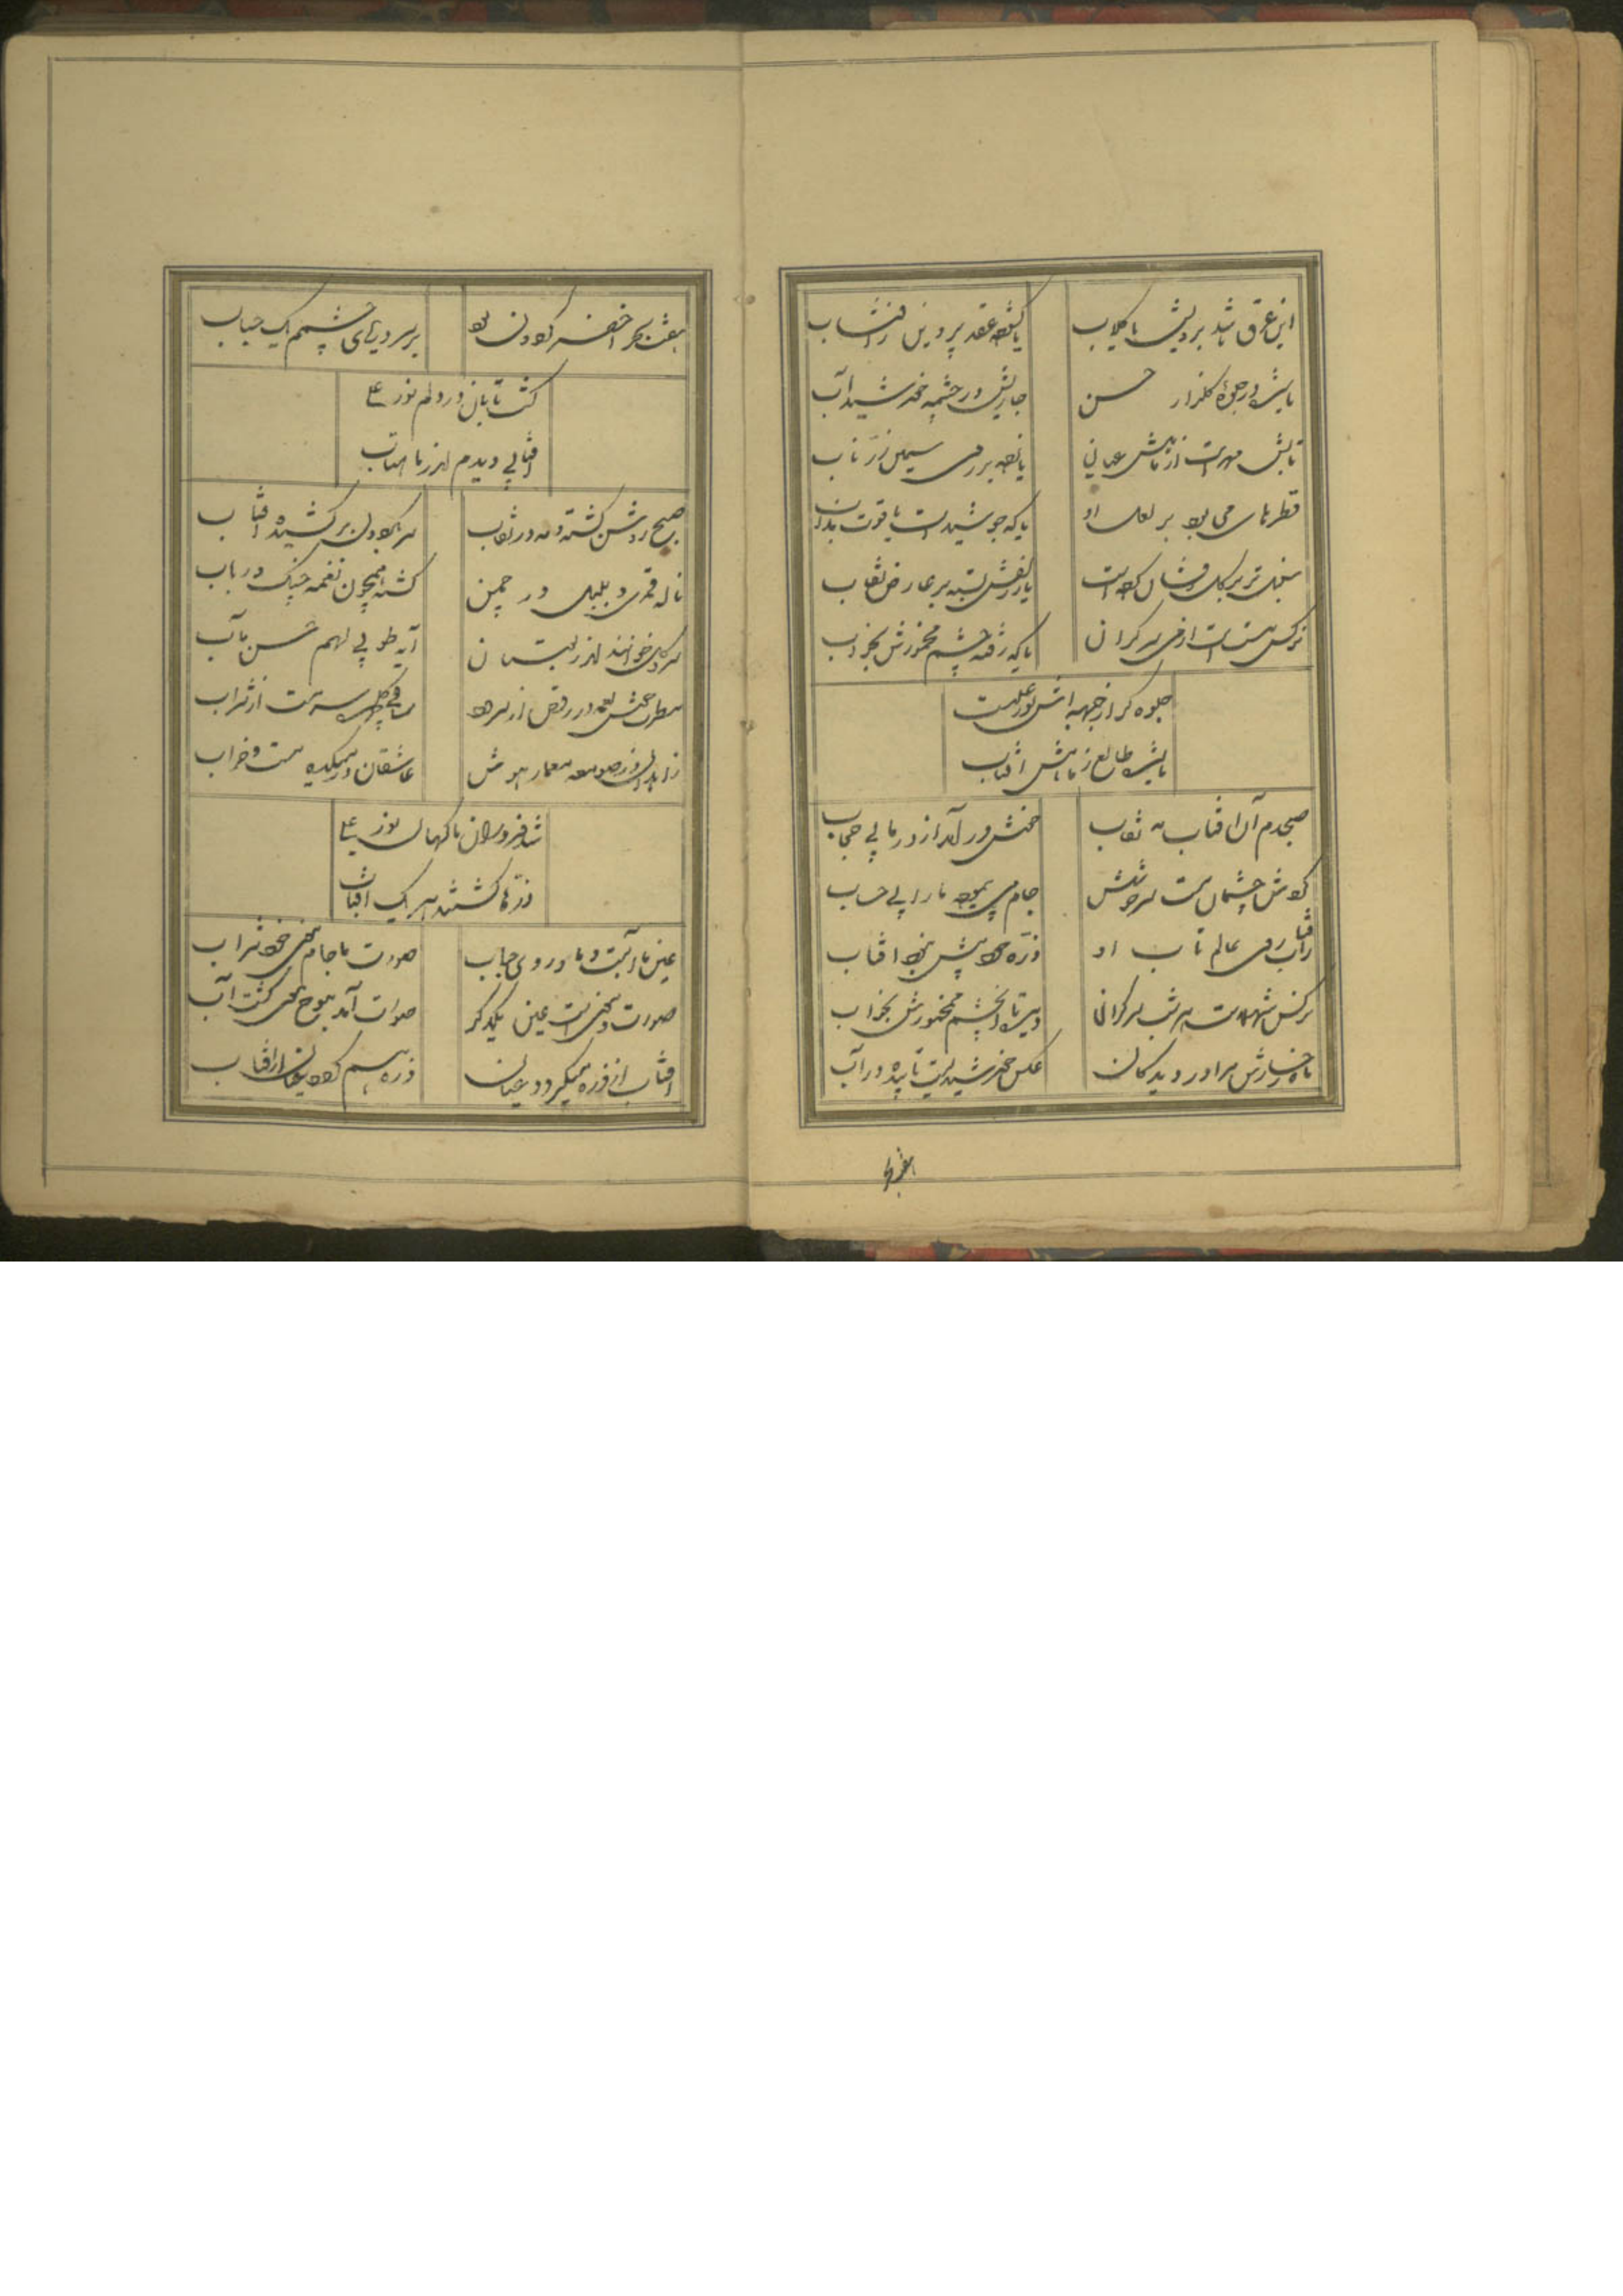 این عرق باشد برویش یا گلاب
یا گشوده عقد پروین ز افتساب
یا بشد در جوی گلزار حسن
جاریش در چشمه خورشید آب
تابش مهر است از ماهش عیانی
یا نهد بر روی سیمین زر ناب
قطرهای می بود بر لعل او
یا که جوشیدست یاقوت مذاب
سنبل تر بر گل افشان کرده است
یا ز زلفش بسته بر عارض نقاب
نرکس مست است از می سرکران
یا که رفته چشم مخمورش بخواب
جلوه کر از جبهه اش نور علیست
یا بشد طالع ز ماهش افتاب
صبحدم آن افتاب مه نقاب
خوش در آمد از در ما بی حجاب
کردش چشمان مست سرخوشش
جام می پیمود ما را بی حساب
افتاب را روی عالم تاب او
ذره سا پیش خود افتاب
نرکس شهلاست سر کران
چشم مخمورش بخواب
ماه رخسارش مرا در دیدکان
عکس خورشیدیست تابیده در آب
هفت بحر
هفت بحر اخضر کردون بود
بر سر دریای چشمم یک حباب
کشت تابان در دلم نور علی
افتابی دیدم اندر ماهتاب
صبح روشن کشته و مه در نقاب
سر بکردون بر کشیده افتاب
ناله قمری و بلبل در چمن
کشته همچون نغمه چنک و رباب
سروکل خوانند اندر بستان
آیه طوبی لهم حسن مآب
مطرب در رقص از سرود
ساقی سرمست از شراب
زاهدان در صومعه معمار هوش
عاشقان در میکده مست و خراب
شد فروزان ناکهان نور علی
ذرها کشتند هر یک افتاب
عین ما آبست و ما در وی حباب
صورت ما جام و معنی خود شراب
صورت و معنی است عین یکدکر
صورت آمد موج و معنی کشت آب
افتاب از ذره میکردد عیان
ذره هم کردد عیان از افتاب